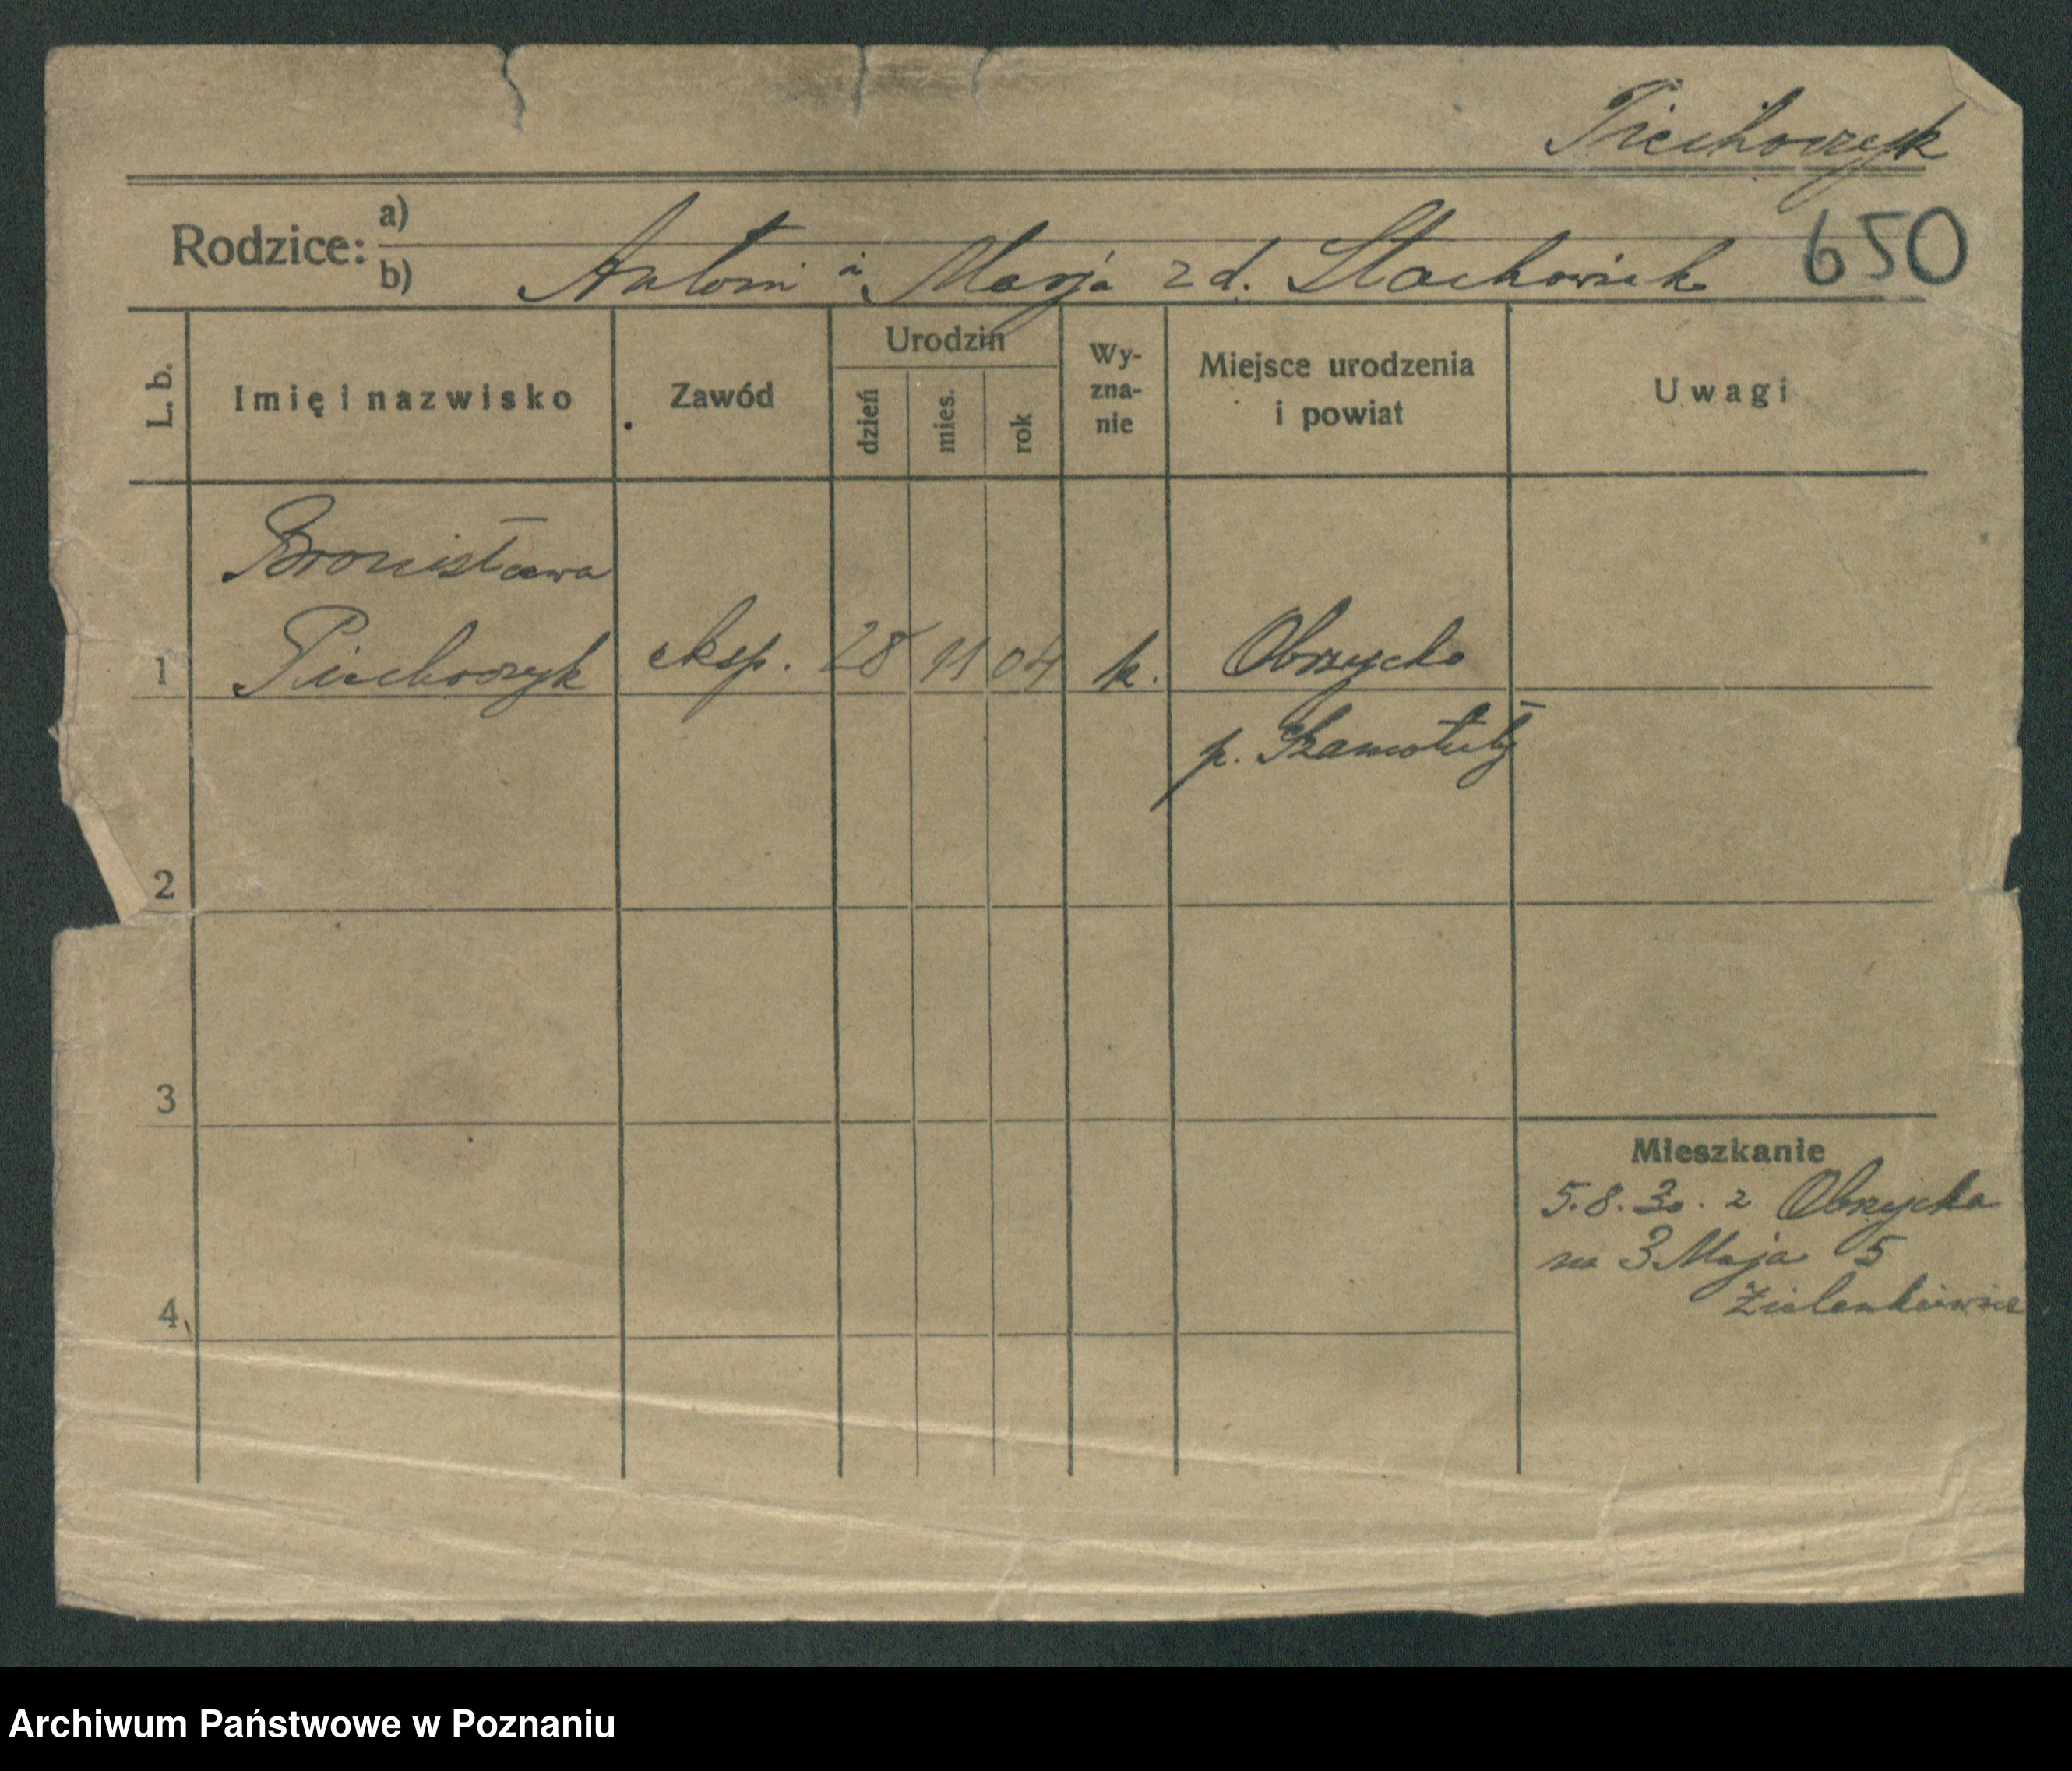 Piechoczyk
650
Rodzice: a)
b) Antoni i Marja z d. Stachowiak
L. b.
Imię i nazwisko
Zawód
Urodzin
dzień
mies.
rok
Wy-
zna-
nie
Miejsce urodzenia
i powiat
Uwagi
Bronisława
1 Piechoczyk eksp. 28 11 04 k. Obrzycko
p. Szamotuły
2
3
4
Mieszkanie
5.8.30. z Obrzycka
na 3 Maja 5
Zielenkiewicz
Archiwum Państwowe w Poznaniu